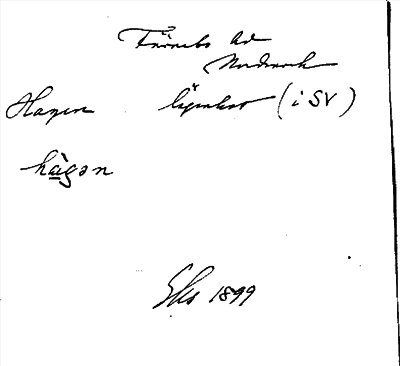 Färnebo hd
Nordmark
Hagen lägenhet (i SV)
hàgən
1899